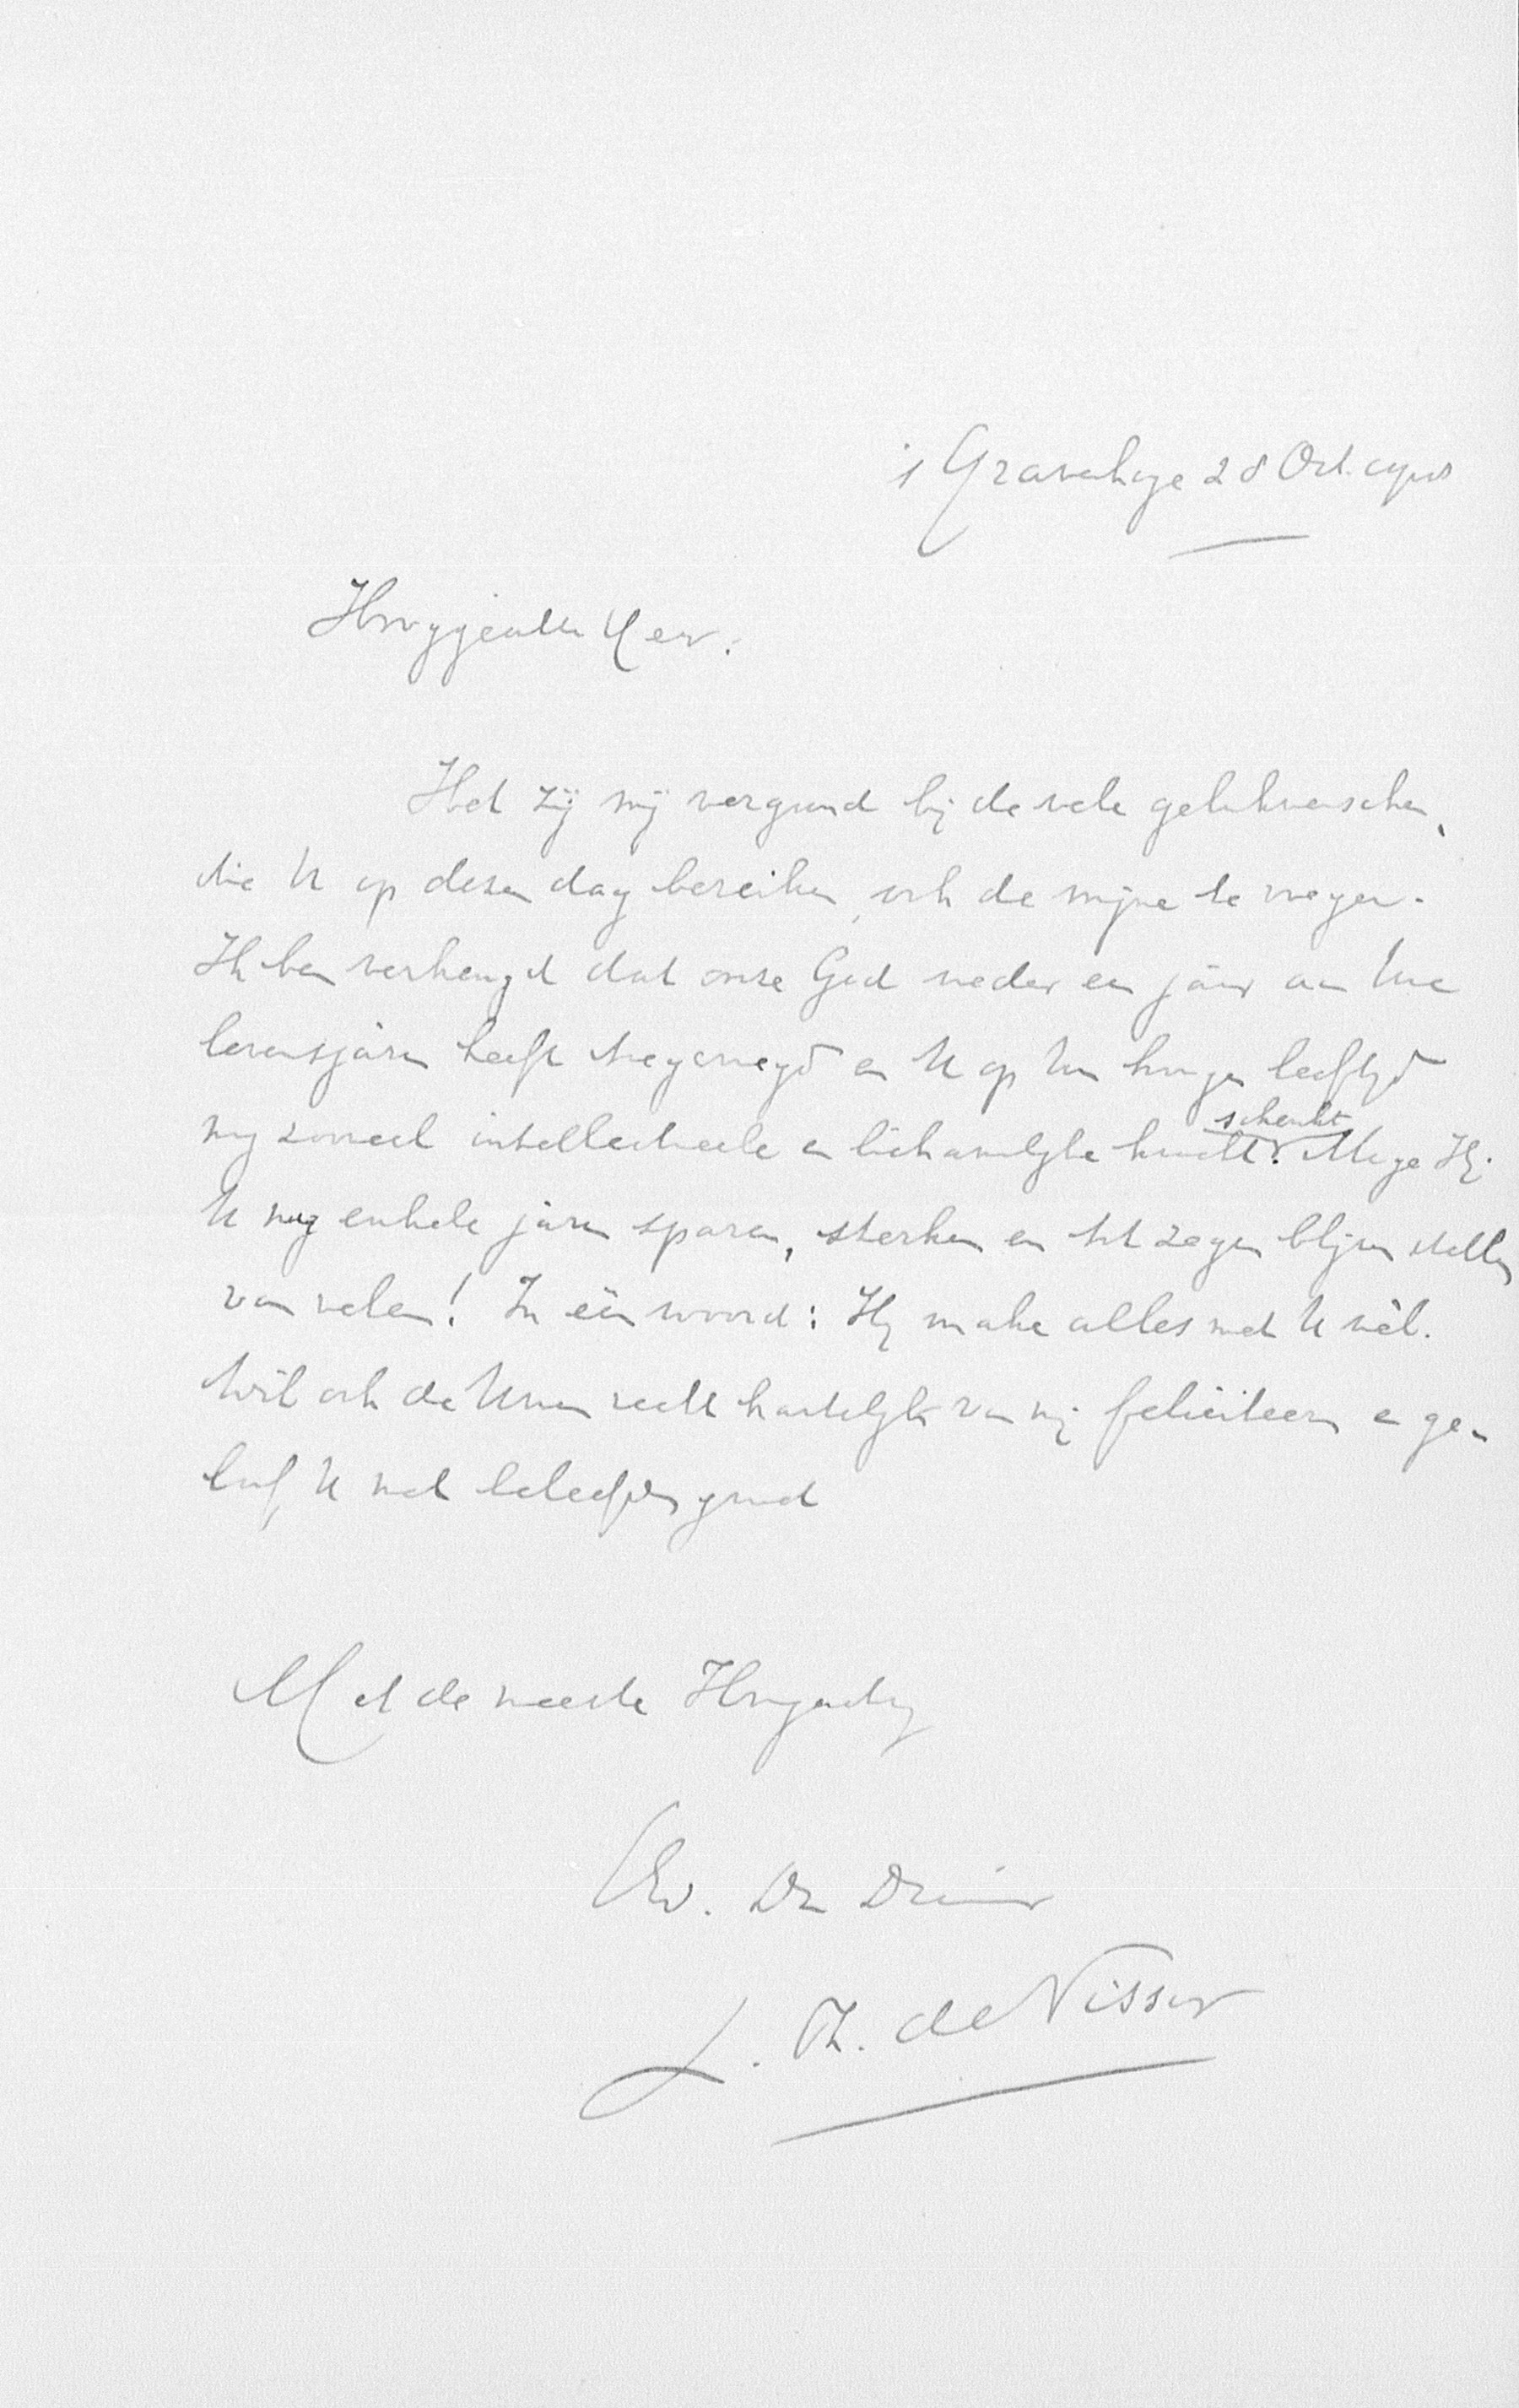 's Gravenhage 28 Oct.
Hooggeachte Heer.
Het zij mij vergund bij de vele gelukwenschen,
die U op dezen dag bereiken, ook de mijne te voegen.
Ik ben verheugd dat onze God weder een jaar aan Uwe
levensjaren heeft toegevoegd en U op Uw hoogen leeftijd
nog zooveel intellectueele en lichamelijke kracht schenkt. Moge Hij
U nog enkele jaren sparen, sterken en tot zegen blijven stellen
van velen! In één woord: Hij make alles met U wèl.
Wil ook de Uwen recht hartelijk van mij feliciteeren en ge-
loof U met beleefden groet
Met de meeste Hoogachting
Uw. Dw Dienaar
J. Th. de Visser